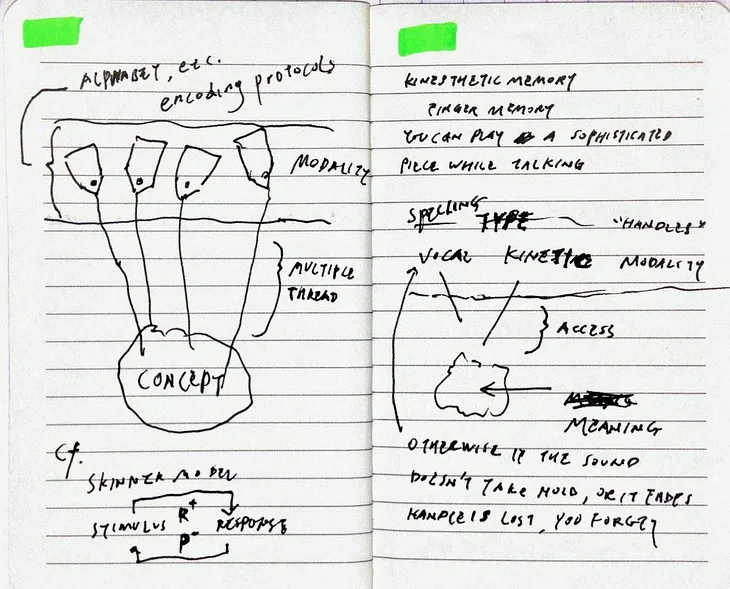 ALPHABET, etc.
encoding protocols
MODALITY
MULTIPLE
THREAD
CONCEPT
Cf.
SKINNER MODEL
R+
STIMULUS RESPONSE
P-
KINESTHETIC MEMORY
FINGER MEMORY
YOU CAN PLAY A SOPHISTICATED
PIECE WHILE TALKING
SPELLING TYPE "HANDLES"
VOCAL KINETIC MODALITY
ACCESS
MEANING
OTHERWISE IF THE SOUND
DOESN'T TAKE HOLD, OR IT FADES
HANDLE IS LOST, YOU FORGET